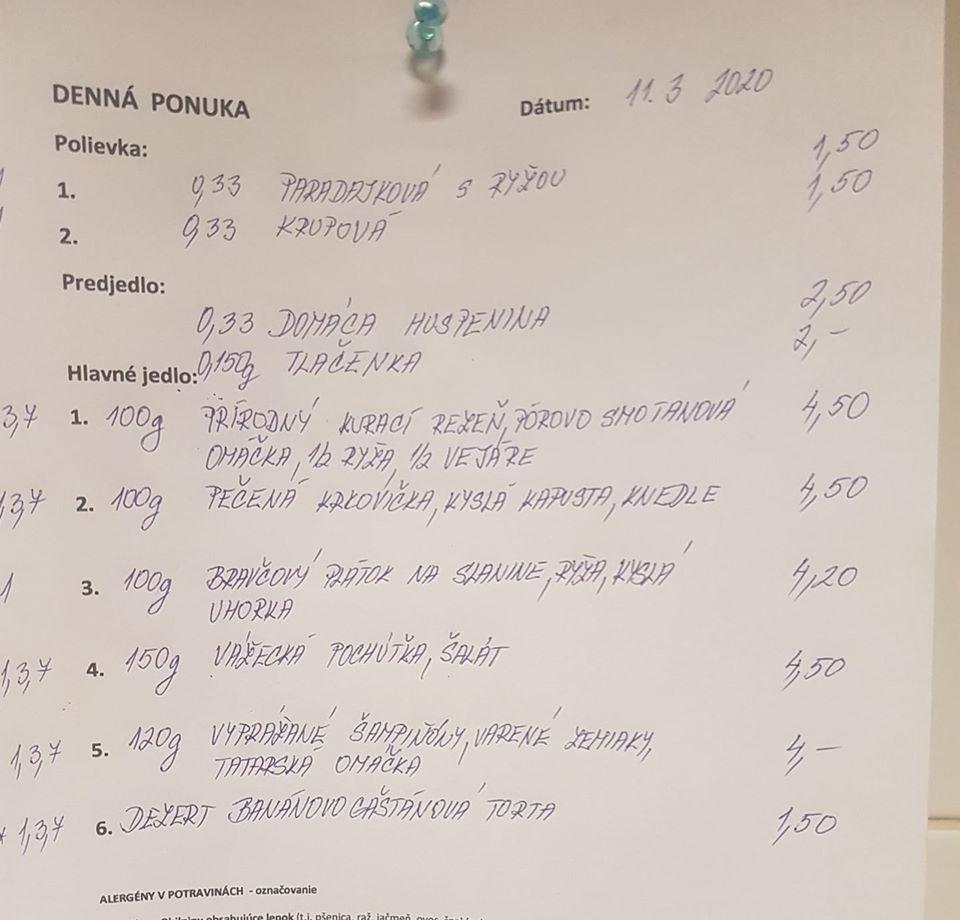 DENNÁ PONUKA Dátum: 11. 3 2020
Polievka: 1,50
1. 0,33 PARADAJKOVÁ S RYŽOU 1,50
2. 0,33 KRUPOVÁ
Predjedlo:
0,33 DOMÁCA HUSPENINA 2,50
0,150g TLAČENKA 2,-
Hlavné jedlo:
3,7 1. 100g PRÍRODNÝ KURACÍ REZEŇ, PÓROVO SMOTANOVÁ 4,50
OMÁČKA, 1/2 RYŽA, 1/2 VEJÁRE
1,3,7 2. 100g PEČENÁ KRKOVIČKA, KYSLÁ KAPUSTA, KNEDLE 4,50
1 3. 100g BRAVČOVÝ PLÁTOK NA SLANINE, RYŽA, KYSLÁ 4,20
UHORKA
1,3,7 4. 150g VAŽECKÁ POCHÚŤKA, ŠALÁT 4,50
1,3,7 5. 120g VYPRÁŽANÉ ŠAMPIŇÓNY, VARENÉ ZEMIAKY, 4,-
TATARSKÁ OMAČKA
* 1,3,7 6. DEZERT BANÁNOVO GAŠTÁNOVÁ TORTA 1,50
ALERGÉNY V POTRAVINÁCH - označovanie
obsahujúce lepok (t.j. pšenica, raž, jačmeň,